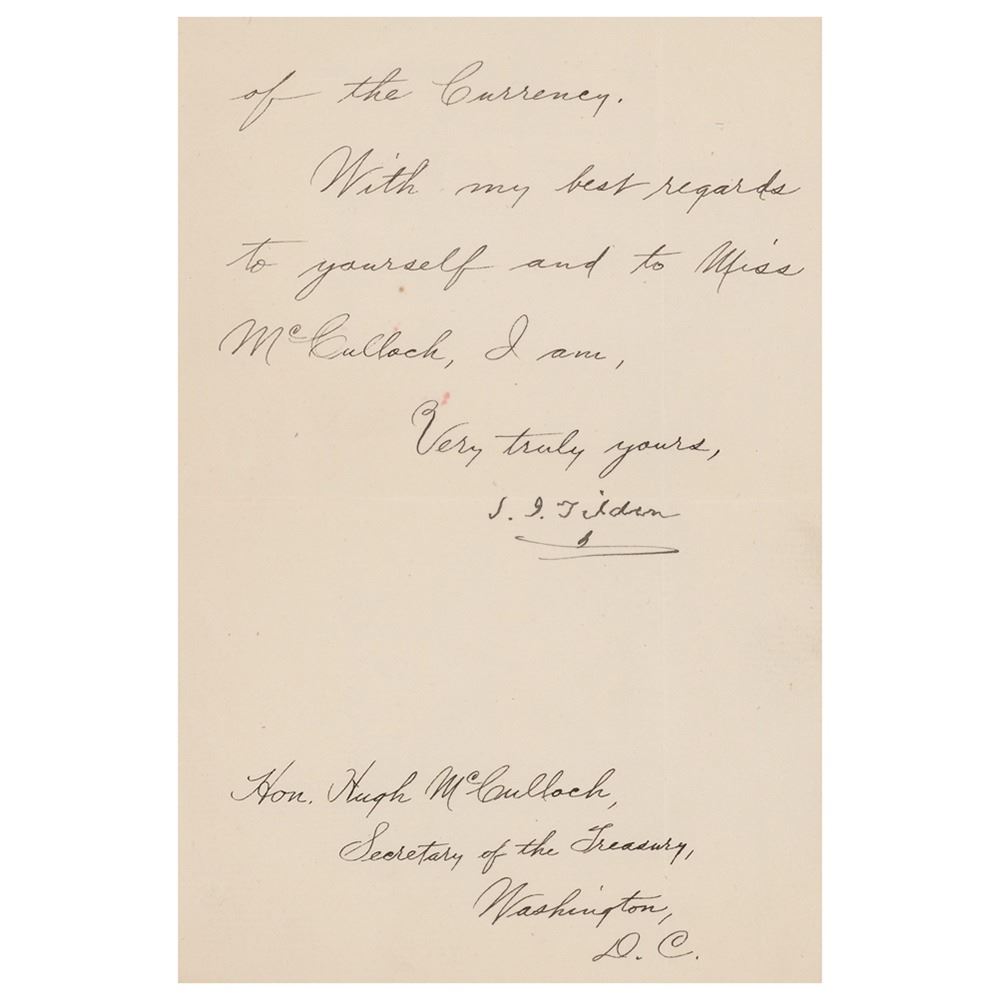 of the Currency.
With my best regards
to yourself and to Miss
McCulloch, I am,
Very truly yours,
S. J. Tilden
Hon. Hugh McCulloch,
Secretary of the Treasury,
Washington,
D. C.